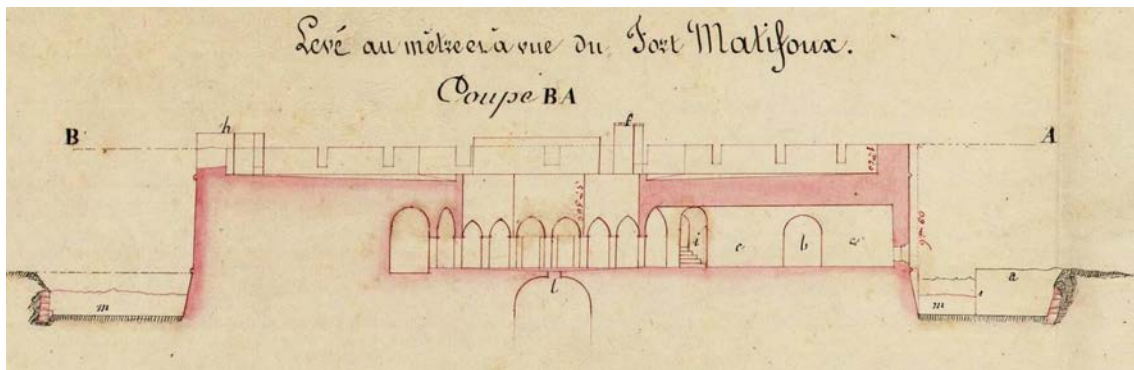 Levé au mètre et à vue du Fort Matifoux.
Coupe BA
h
f
B
A
i
c
b
a
l
m
m
a